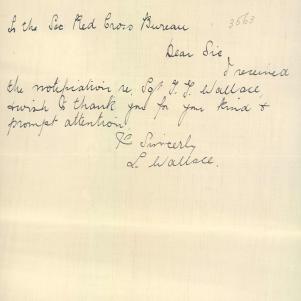 To the Sec Red Cross Bureau 3563
Dear Sir
I received
the notification re. Sgt Wallace,
& wish to thank you for your kind &
prompt attention
Yrs Sincerly
L. Wallace.